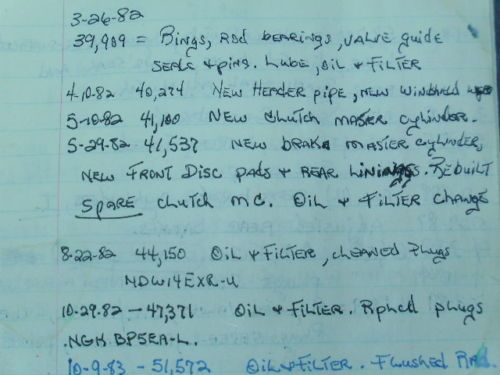 3-26-82
39,909 = Rings, Rod bearings, valve guide
seals & pins. Lube, oil & Filter
4-10-82 40,274 New Header pipe, new windshield
5-10-82 41,100 New Clutch master cylinder.
5-29-82 41,537 new brake master cylinder,
new Front Disc pads & rear Linings. Rebuilt
spare clutch m.c. Oil & Filter change
8-22-82 44,150 Oil & Filter, cleaned plugs
NDW14EXR-U
10-29-82 - 47,371 Oil & Filter. Rplced plugs
.NGK BP5EA-L.
10-9-83 - 51,572 Oil & Filter. Flushed Rad.